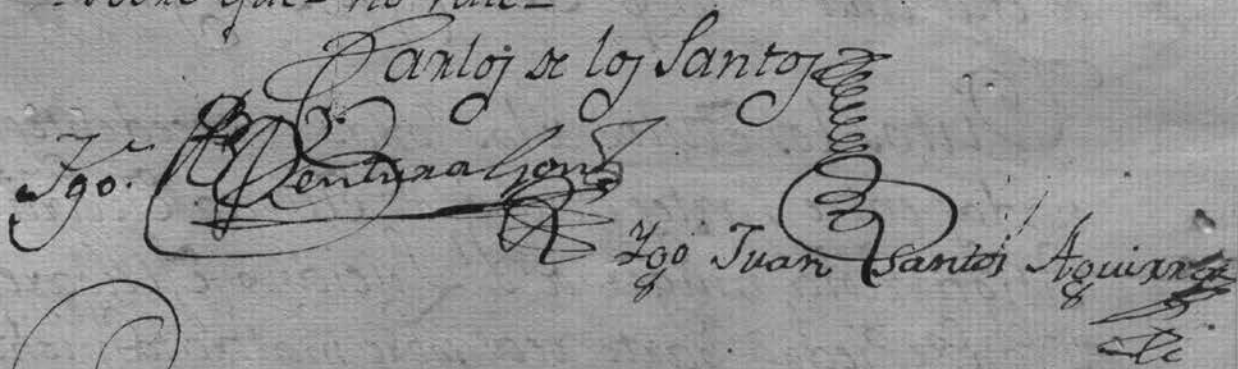 que no vale
Carlos de los Santos
Tgo. Ventura Gonz
Tgo Juan Santos Aguirre